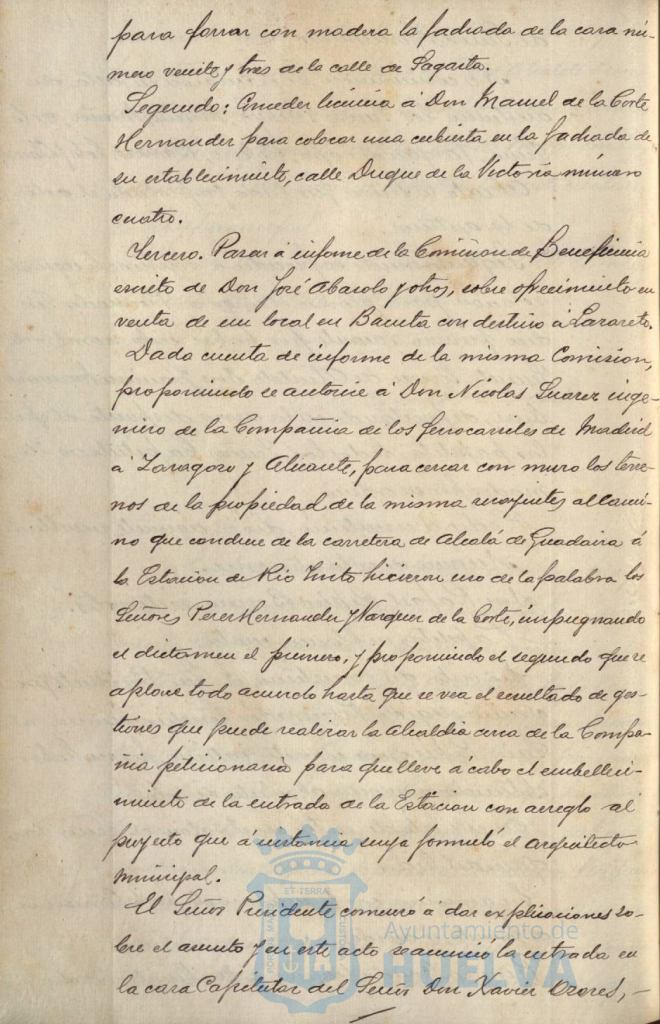 para forrar con madera la fachada de la casa nú-
mero veinte y tres de la calle de Sagasta.
Segundo: Conceder licencia á Don Manuel de la Corte
Hernandez para colocar una cubierta en la fachada de
su establecimiento, calle Duque de la Victoria número
cuatro.
Tercero. Pasar á informe de la Comision de Beneficencia
escrito de Don José Abasolo y otros, sobre ofrecimiento en
venta de un local en Bacuta con destino á Lazareto.
Dada cuenta de informe de la misma Comision,
proponiendo se autorice á Don Nicolas Suarez inge-
niero de la Compañia de los ferrocarriles de Madrid
á Zaragoza y Alicante, para cercar con muro los terre-
nos de la propiedad de la misma recayentes al cami-
no que conduce de la carretera de Alcalá de Guadaira á
la Estacion de Rio Tinto hicieron uso de la palabra los
Señores Perez Hernandez y Vazquez de la Corte, impugnando
el dictamen el primero, y proponiendo el segundo que se
aplace todo acuerdo hasta que se vea el resultado de ges-
tiones que puede realizar la Alcaldia cerca de la Compa-
ñia peticionaria para que lleve á cabo el embelleci-
miento de la entrada de la Estacion con arreglo al
proyecto que á instancia suya formuló el arquitecto
municipal.
El Señor Presidente comenzó á dar explicaciones so-
bre el asunto y en este acto se anunció la entrada en
la casa Capitular del Señor Don Xavier Ozores,-
Ayuntamiento de
HUELVA